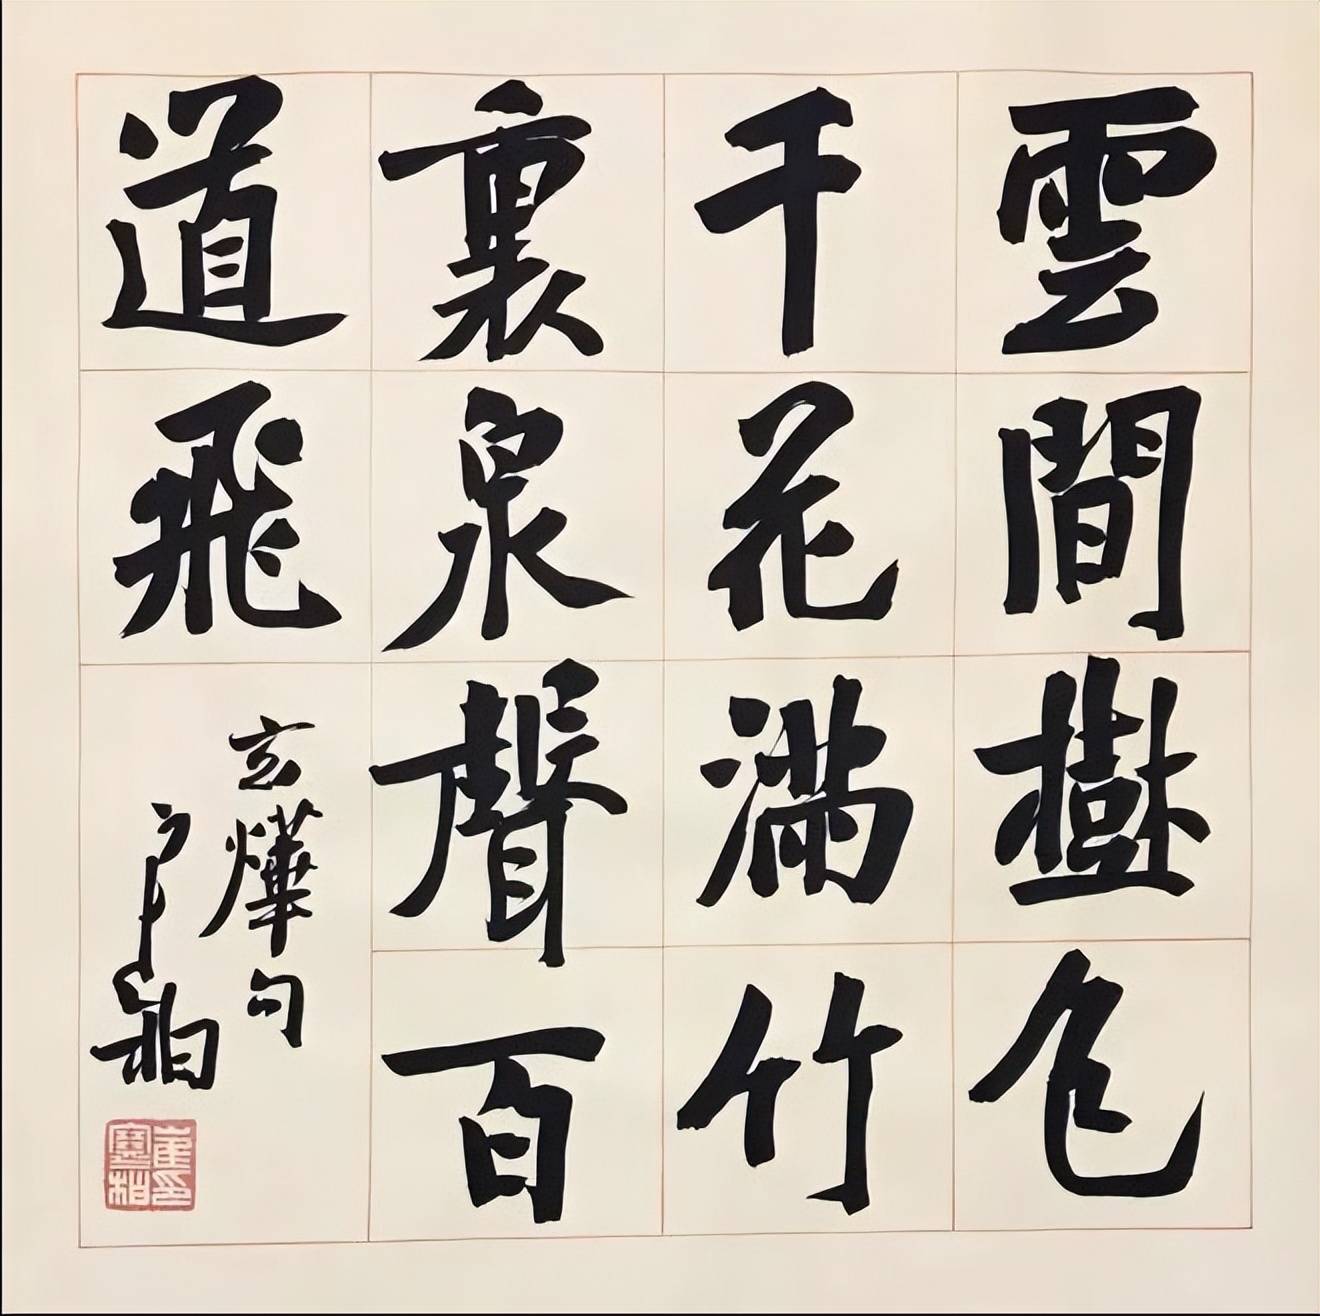 雲間樹色
千花滿竹
裏泉聲百
道飛
玄燁句
寒柏
崔印寒柏